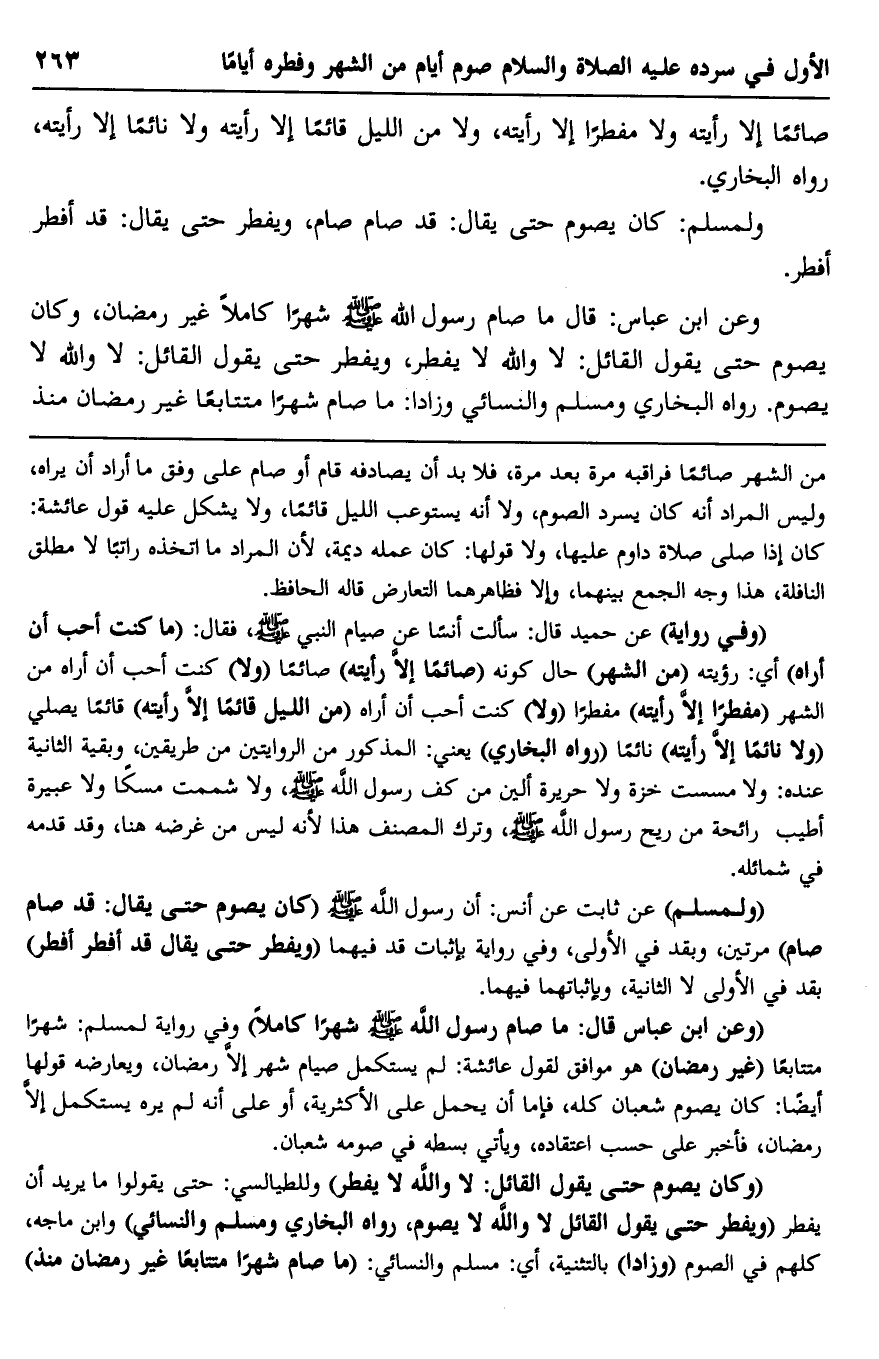 الأول في سرده عليه الصلاة والسلام صوم أيام من الشهر وفطره أيامًا ٢٦٣
صائمًا إلا رأيته ولا مفطرًا إلا رأيته، ولا من الليل قائمًا إلا رأيته ولا نائمًا إلا رأيته،
رواه البخاري.
ولمسلم: كان يصوم حتى يقال: قد صام صام، ويفطر حتى يقال: قد أفطر
أفطر.
وعن ابن عباس: قال ما صام رسول الله ﷺ شهرًا كاملاً غير رمضان، وكان
يصوم حتى يقول القائل: لا والله لا يفطر، ويفطر حتى يقول القائل: لا والله لا
يصوم. رواه البخاري ومسلم والنسائي وزادا: ما صام شهرًا متتابعًا غير رمضان منذ
من الشهر صائمًا فراقبه مرة بعد مرة، فلا بد أن يصادفه قام أو صام على وفق ما أراد أن يراه،
وليس المراد أنه كان يسرد الصوم، ولا أنه يستوعب الليل قائمًا، ولا يشكل عليه قول عائشة:
كان إذا صلى صلاة داوم عليها، ولا قولها: كان عمله ديمة، لأن المراد ما اتخذه راتبًا لا مطلق
النافلة، هذا وجه الجمع بينهما، وإلا فظاهرهما التعارض قاله الحافظ.
(وفي رواية) عن حميد قال: سألت أنسًا عن صيام النبي ﷺ، فقال: (ما كنت أحب أن
أراه) أي: رؤيته (من الشهر) حال كونه (صائمًا إلاَّ رأيته) صائمًا (ولا) كنت أحب أن أراه من
الشهر (مفطرًا إلاَّ رأيته) مفطرًا (ولا) كنت أحب أن أراه (من الليل قائمًا إلاَّ رأيته) قائمًا يصلي
(ولا نائمًا إلاَّ رأيته) نائمًا (رواه البخاري) يعني: المذكور من الروايتين من طريقين، وبقية الثانية
عنده: ولا مسست خزة ولا حريرة ألين من كف رسول اللَّه ﷺ، ولا شممت مسكًا ولا عبيرة
أطيب رائحة من ريح رسول اللَّه ﷺ، وترك المصنف هذا لأنه ليس من غرضه هنا، وقد قدمه
في شمائله.
(ولمسلم) عن ثابت عن أنس: أن رسول اللَّه ﷺ (كان يصوم حتى يقال: قد صام
صام) مرتين، وبقد في الأولى، وفي رواية بإثبات قد فيهما (ويفطر حتى يقال قد أفطر أفطر)
بقد في الأولى لا الثانية، وبإثباتهما فيهما.
(وعن ابن عباس قال: ما صام رسول اللَّه ﷺ شهرًا كاملاً) وفي رواية لمسلم: شهرًا
متتابعًا (غير رمضان) هو موافق لقول عائشة: لم يستكمل صيام شهر إلاَّ رمضان، ويعارضه قولها
أيضًا: كان يصوم شعبان كله، فإما أن يحمل على الأكثرية، أو على أنه لم يره يستكمل إلاَّ
رمضان، فأخبر على حسب اعتقاده، ويأتي بسطه في صومه شعبان.
(وكان يصوم حتى يقول القائل: لا واللَّه لا يفطر) وللطيالسي: حتى يقولوا ما يريد أن
يفطر (ويفطر حتى يقول القائل لا واللَّه لا يصوم، رواه البخاري ومسلم والنسائي) وابن ماجه،
كلهم في الصوم (وزادا) بالتثنية، أي: مسلم والنسائي: (ما صام شهرًا متتابعًا غير رمضان منذ)